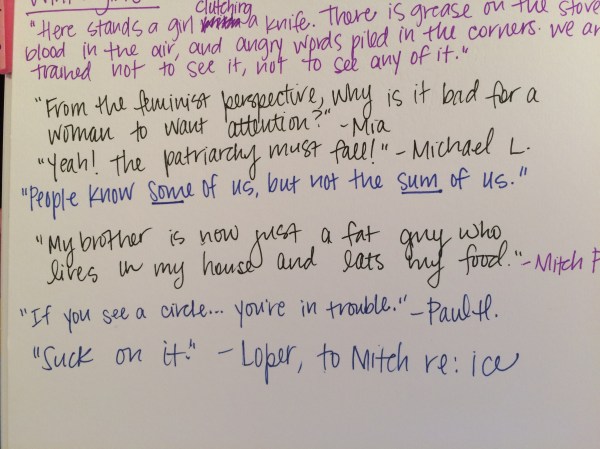 clutching
"Here stands a girl a knife. There is grease on the stove
blood in the air, and angry words piled in the corners. We ar
trained not to see it, not to see any of it."
"From the feminist perspective, why is it bad for a
woman to want attention?" -Mia
"Yeah! the patriarchy must fall!" - Michael L.
"People know some of us, but not the sum of us."
"My brother is now just a fat guy who
lives in my house and eats my food." -Mitch P
"If you see a circle... you're in trouble." -Paul H.
"Suck on it." - Loper, to Mitch re: ice